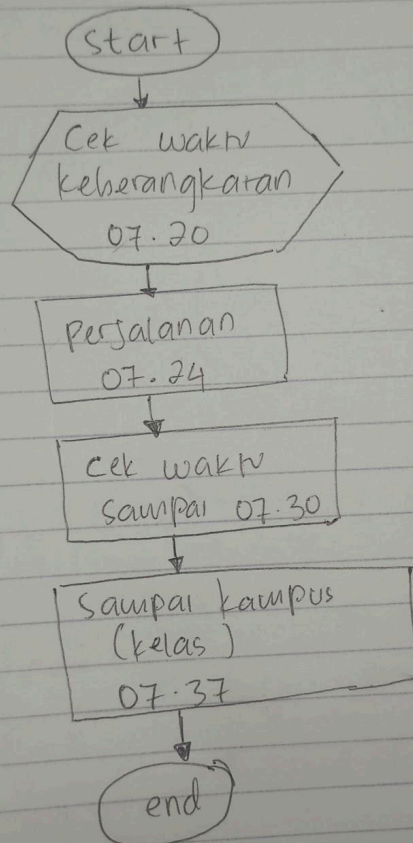 start
Cek waktu
keberangkatan
07.20
perjalanan
07.24
cek waktu
sampai 07.30
Sampai kampus
(kelas)
07.37
end